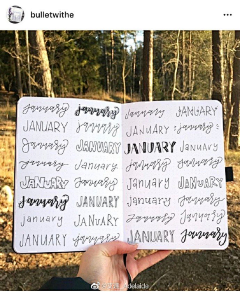 bulletwithe
january january
JANUARY january
JANUARY JANUARY
january january
JANUARY january
january JANUARY
january january
JANUARY january
january JANUARY
JANUARY january
JANUARY JANUARY
january january
january JANUARY
january january
january january
JANUARY january